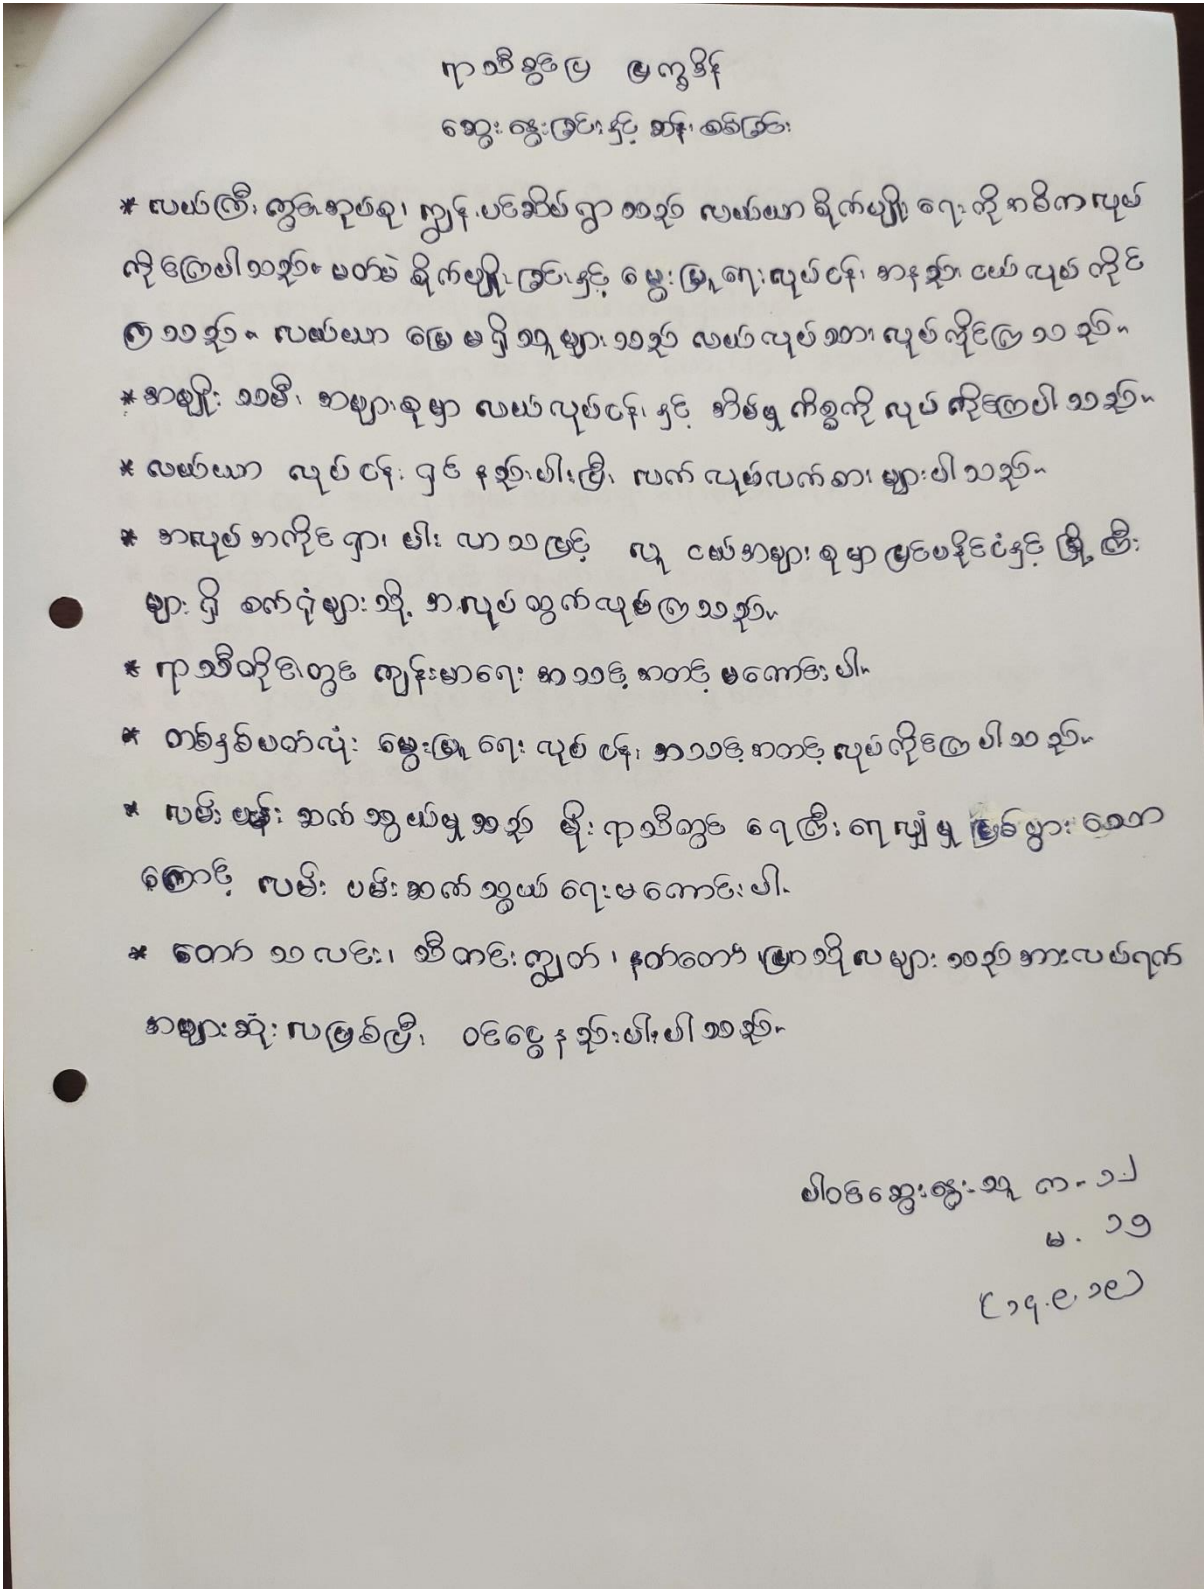 ရာသီခွင်ပြ ပြက္ခဒိန်
ဆွေးနွေးခြင်းနှင့် ဆန်းစစ်ခြင်း
* လယ်ကြီးကွင်းအုပ်စု၊ ကျွန်းပင်ဆိပ်ရွာသည် လယ်ယာစိုက်ပျိုးရေးကိုအဓိကလုပ်
ကိုင်ကြပါသည်။ မတ်ပဲ စိုက်ပျိုးခြင်းနှင့် မွေးမြူရေးလုပ်ငန်း အနည်းငယ်လုပ်ကိုင်
ကြသည်။ လယ်ယာ မြေမရှိသူများသည် လယ်လုပ်သားလုပ်ကိုင်ကြသည်။
* အမျိုးသမီးအများစုမှာ လယ်လုပ်ငန်းနှင့် အိမ်မှုကိစ္စကို လုပ်ကိုင်ကြပါသည်။
* လယ်ယာ လုပ်ငန်းရှင်နည်းပါးပြီး လက်လုပ်လက်စားများပါသည်။
* အလုပ်အကိုင်ရှားပါးလာသဖြင့် လူငယ်အများစုမှာမြင်ပနိုင်ငံနှင့် မြို့ကြီး
များရှိ စက်ရုံများသို့ အလုပ်ထွက်လုပ်ကြသည်။
* ရာသီတိုင်းတွင် ကျန်းမာရေး အသင့်အတင့် မကောင်းပါ။
* တစ်နှစ်ပတ်လုံး မွေးမြူရေးလုပ်ငန်းအသင့်အတင့်လုပ်ကိုင်ကြပါသည်။
* လမ်းပန်းဆက်သွယ်မှုသည် မိုးရာသီတွင် ရေကြီးရေလျှံမှု ဖြစ်ပွားသော
ကြောင့် လမ်းပမ်းဆက်သွယ်ရေးမကောင်းပါ။
* တော်သလင်း၊ သီတင်းကျွတ်၊ နတ်တော်၊ ပြာသိုလများသည်အားလပ်ရက်
အများဆုံးလဖြစ်ပြီး ဝင်ငွေနည်းပါးပါသည်။
ပါဝင်ဆွေးနွေးသူ က-၁၂
မ. ၁၅
(၁၄.၉.၁၉)